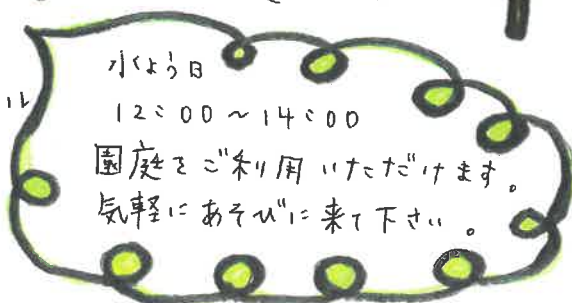 水よう日
12:00～14:00
園庭をご利用いただけます。
気軽にあそびに来て下さい。
ル